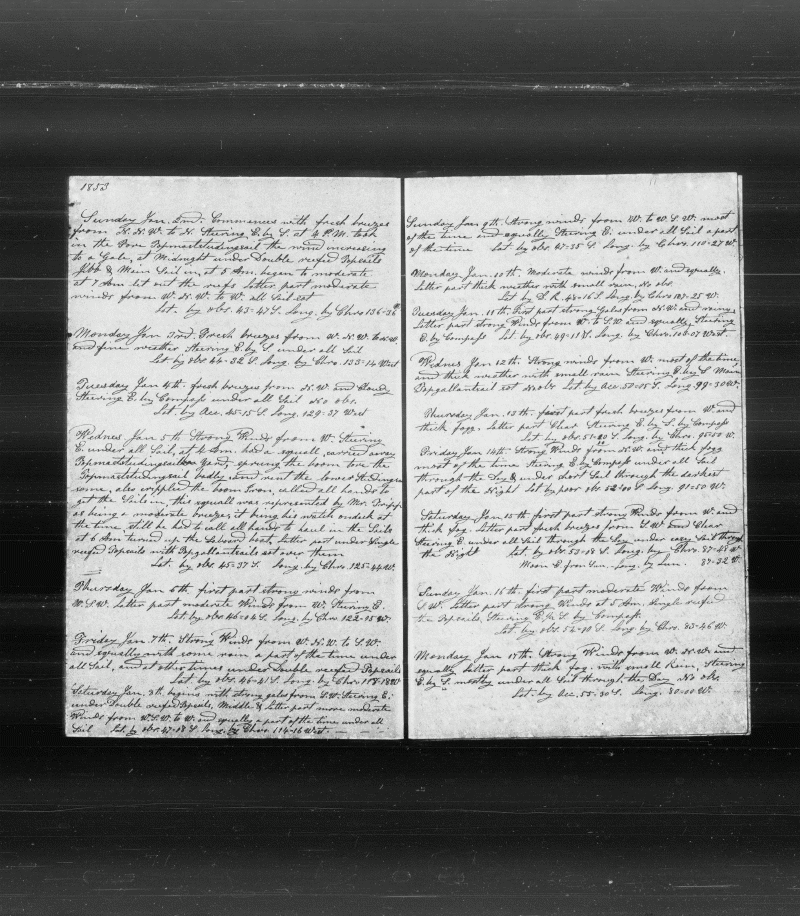 1853
Sunday Jan. 2nd. Commences with fresh breezes
from N. N. W. to N. Steering E. by S. at 4 P.M. took
in the Fore Topmaststudingsail the wind increasing
to a Gale, at Midnight under Double reefed Topsails
Jibb & Main Sail in, at 5 Am. began to moderate
at 7 Am. let out the reefs Latter part moderate
winds from W. N. W. to W. all Sail set
Lat. by obs. 43-47 S. Long. by Chro 136-36 W
Monday Jan 3rd. Fresh breezes from W. N. W. to N. W.
and fine weather Steering E. by S. under all Sail
Lat by obs 44-32 S. Long. by Chro. 133-14 West
Tuesday Jan 4th. fresh breezes from N. W. and Cloudy
Steering E. by Compass under all Sail No obs.
Lat. by Acc. 45-15 S. Long. 129-37 West
Wednes Jan 5th Strong Winds from W. Steering
E. under all Sail, at 4 Am. had a squall, carried away
Topmaststudingsail Yard, sprung the boom tore the
Topmaststudingsail badly and rent the lower Studingsa
some, also crippled the boom Iron, called all hands to
get the Sails in, this squall was represented by Mr. Tripp
as being a moderate breeze, it being his watch ondeck at
the time, still he had to call all hands to haul in the Sails
at 6 Am turned up the Laboard boat, latter part under Single
reefed Topsails with Topgallantsails set over them
Lat. by obs. 45-37 S. Long. by Chro. 125-44 W.
Thursday Jan 6th. first part strong winds from
W. S. W. latter part moderate Winds from W. Steering E.
Lat. by obs 46-04 S. Long. by Chro 122-05 W.
Friday Jan. 7th. Strong Winds from W. N. W. to S. W.
and squally with some rain a part of the time under
all Sail, and at other times under Double reefed Topsails
Lat. by obs. 46-41 S. Long. by Chro 118-18 W
Saturday Jan. 8th. begins with strong gales from S. W. Steering E.
under Double reefed Topsails, Middle & Latter part more moderate
Winds from W. S. W. to W. and squally a part of the time under all
Sail Lat. by obs. 47-08 S. Long. by Chro. 114-16 West
Sunday Jan 9th. Strong winds from W. to W. S. W. most
of the time and squally, Steering E. under all Sail a part
of the time Lat by obs. 47-55 S. Long. by Chro. 110-27 W.
Monday Jan. 10th. Moderate winds from W. and squally.
Latter part thick weather with small rain, No obs.
Lat. by D. R. 48-16 S. Long. by Chro 107-25 W.
Tuesday Jan. 11th. First part strong Gales from N. W. and rainy,
Latter part strong Winds from W. to S. W. and squally, Steering
E. by Compass Lat by obs. 49-11 S. Long. by Chro. 103-07 West.
Wednes Jan 12th. Strong winds from W. most of the time,
and thick weather with small rain Steering E. by S. Main
Topgallantsail set No obs Lat by Acc. 50-15 S. Long 99-30 W.
Thursday Jan. 13th. first part fresh breezes from W. and
thick fogg. latter part Clear Steering E. by S. by Compass
Lat by obs. 51-20 S. Long. by Chro. 95-50 W.
Friday Jan. 14th. Strong Winds from N. W. and thick fogg
most of the time Steering E. by Compass under all Sail
through the Day & under short Sail through the darkest
part of the Night Lat by poor obs 52-00 S. Long. 91-50 W.
Saturday Jan. 15th first part strong Winds from W. and
thick fog. Latter part fresh breezes from S. W. and Clear
Steering E. under all Sail through the Day under easy Sail through
the Night Lat by obs 53-08 S. Long. by Chro. 87-48 W.
Moon E. from Sun. Long. by Lun. 87-22 W.
Sunday Jan. 16th. first part moderate Winds from
S. W. latter part strong Winds at 5 Am. single reefed
the Topsails, Steering E. by Compass
Lat. by obs. 54-18 S. Long. by Chro. 83-46 W.
Monday Jan 17th. Strong Winds from W. N. W. and
squally, latter part thick fog. with small Rain, Steering
E. by S. mostly under all Sail through the Day, No obs.
Lat. by Acc. 55-30 S. Long. 80-10 W.